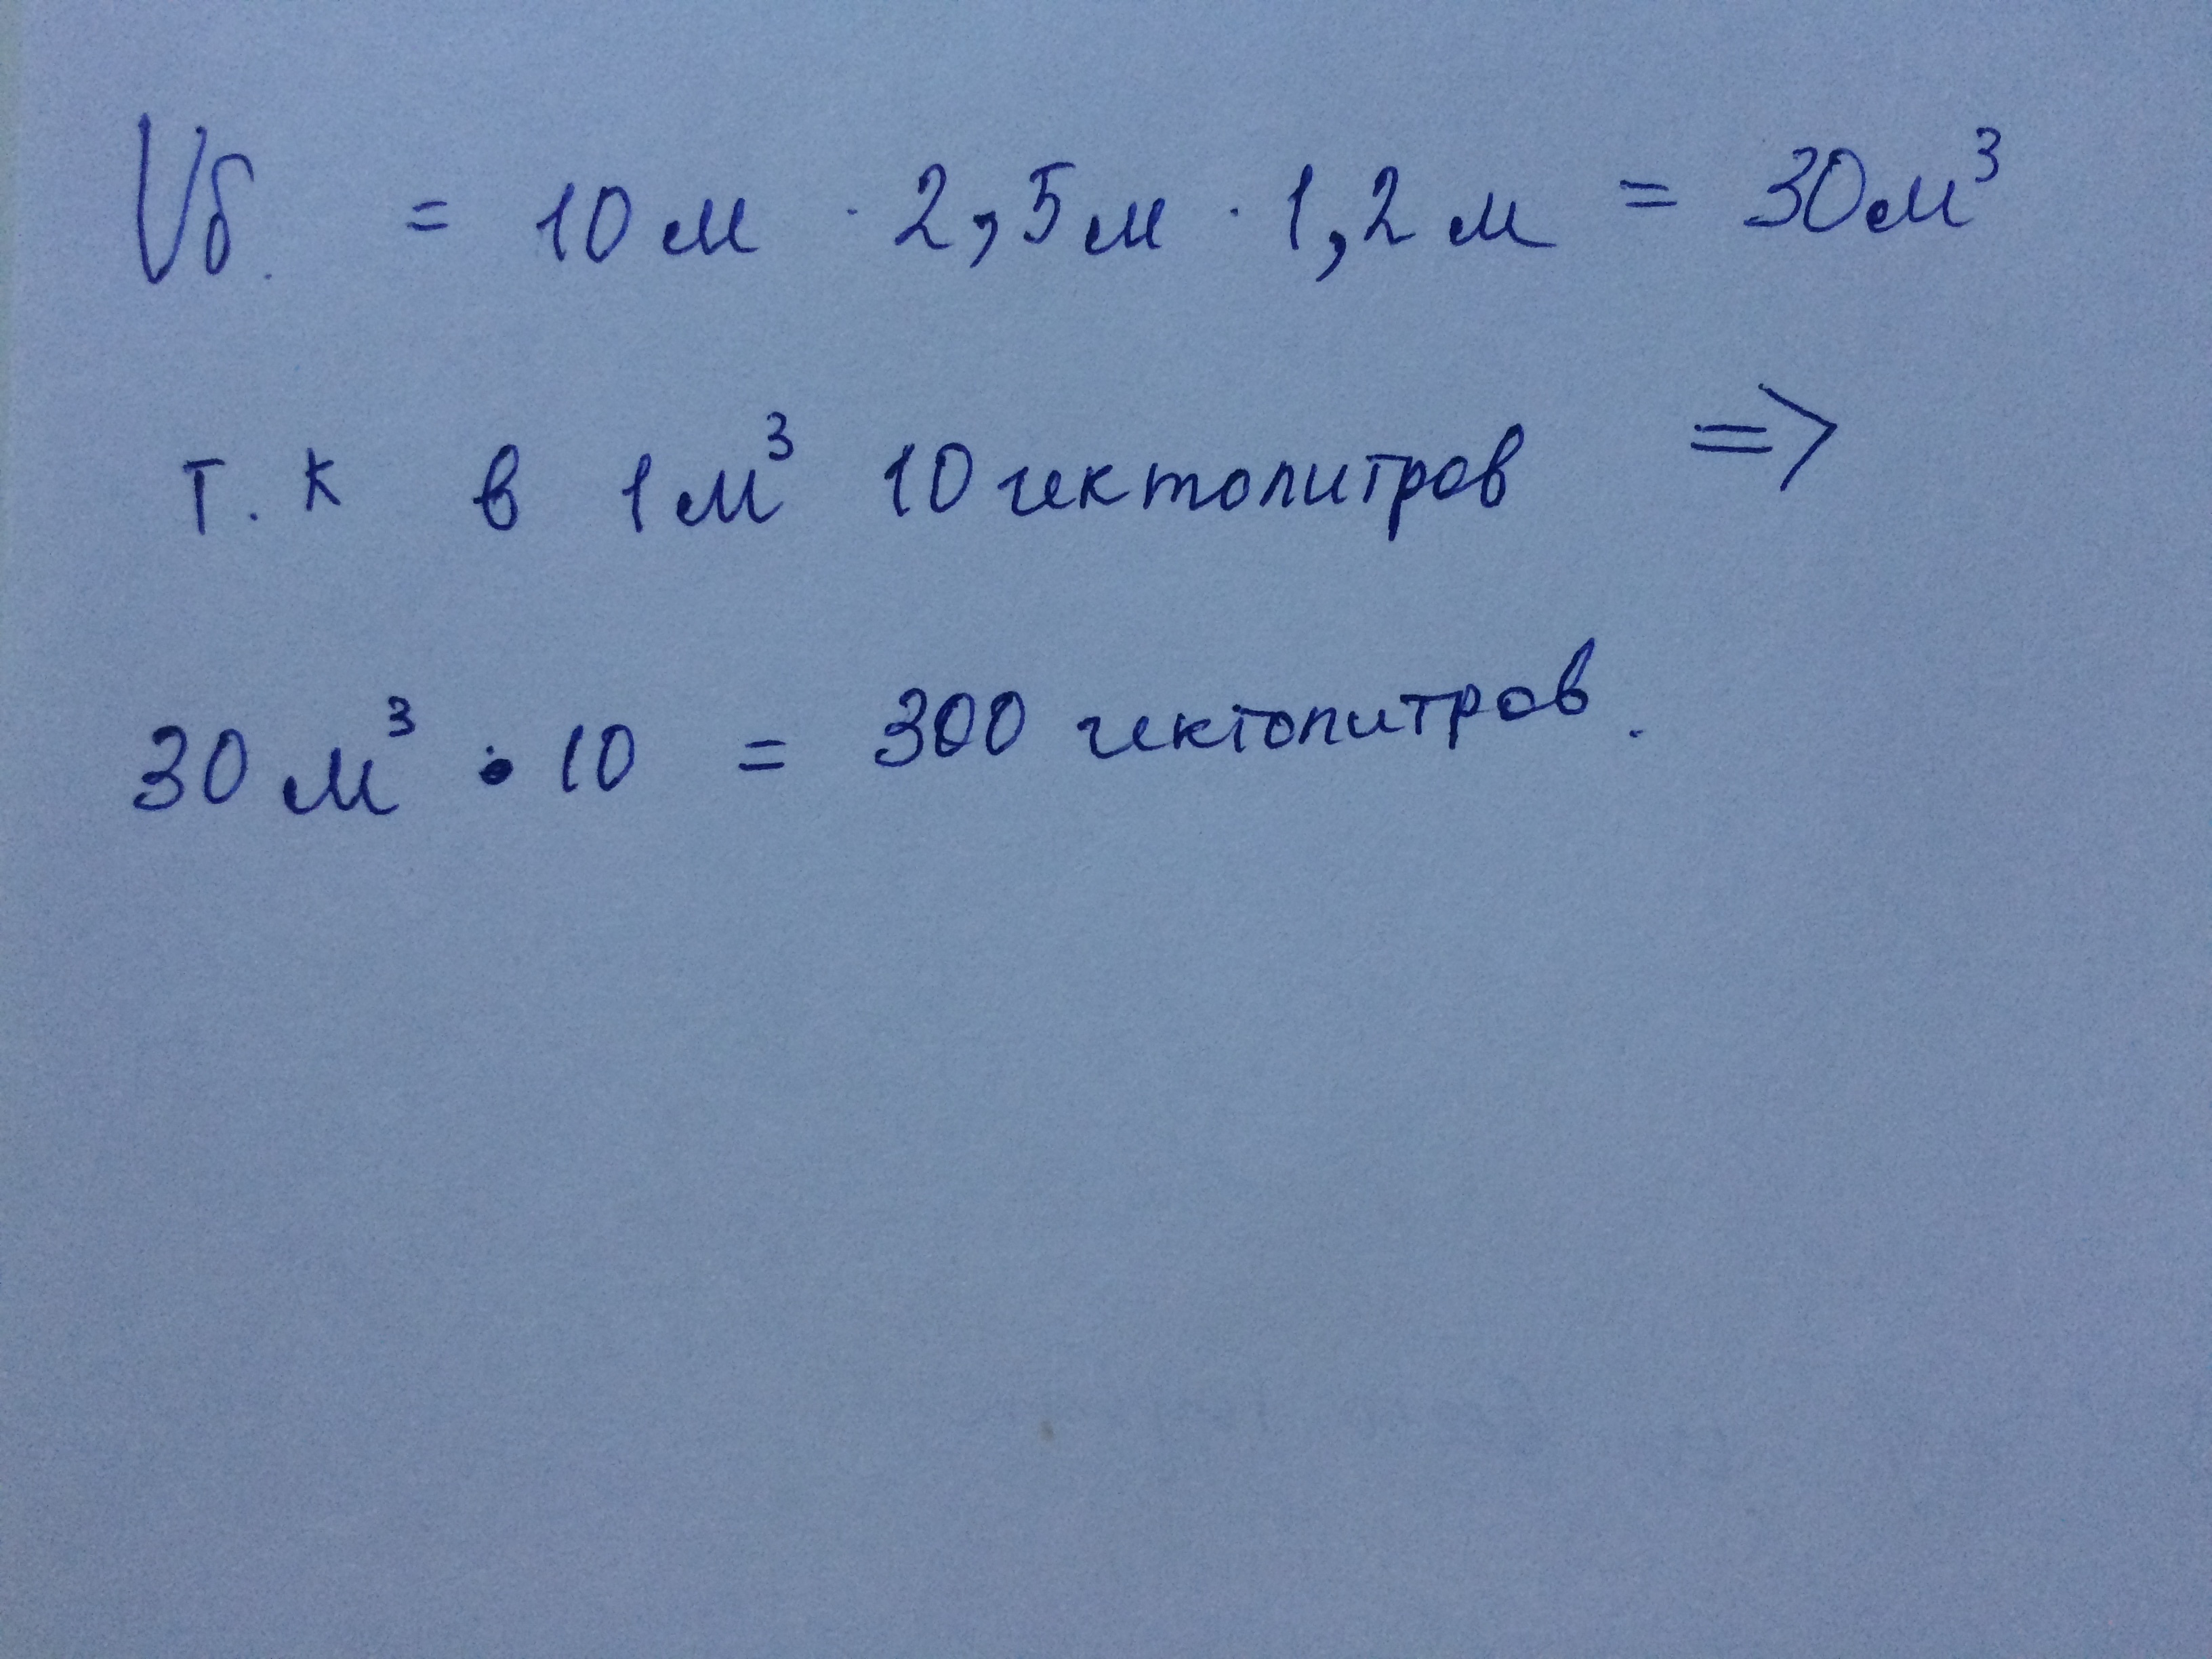 Vб. = 10 м · 2,5 м · 1,2 м = 30 м³
т. к в 1 м³ 10 гектолитров =>
30 м³ · 10 = 300 гектолитров.